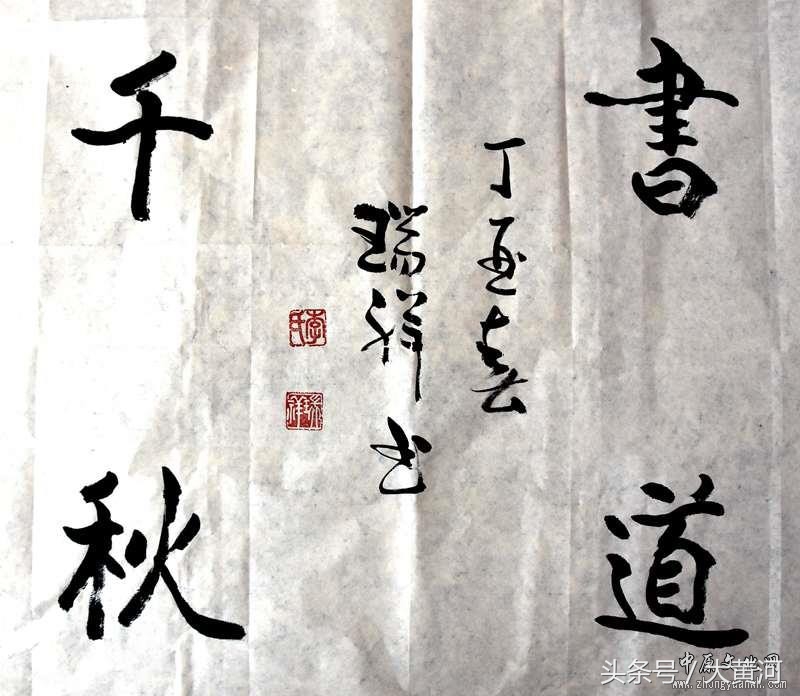 書道
千秋
丁酉春
瑞祥书
李氏
瑞祥
中原文化网
头条号 / 大黄河